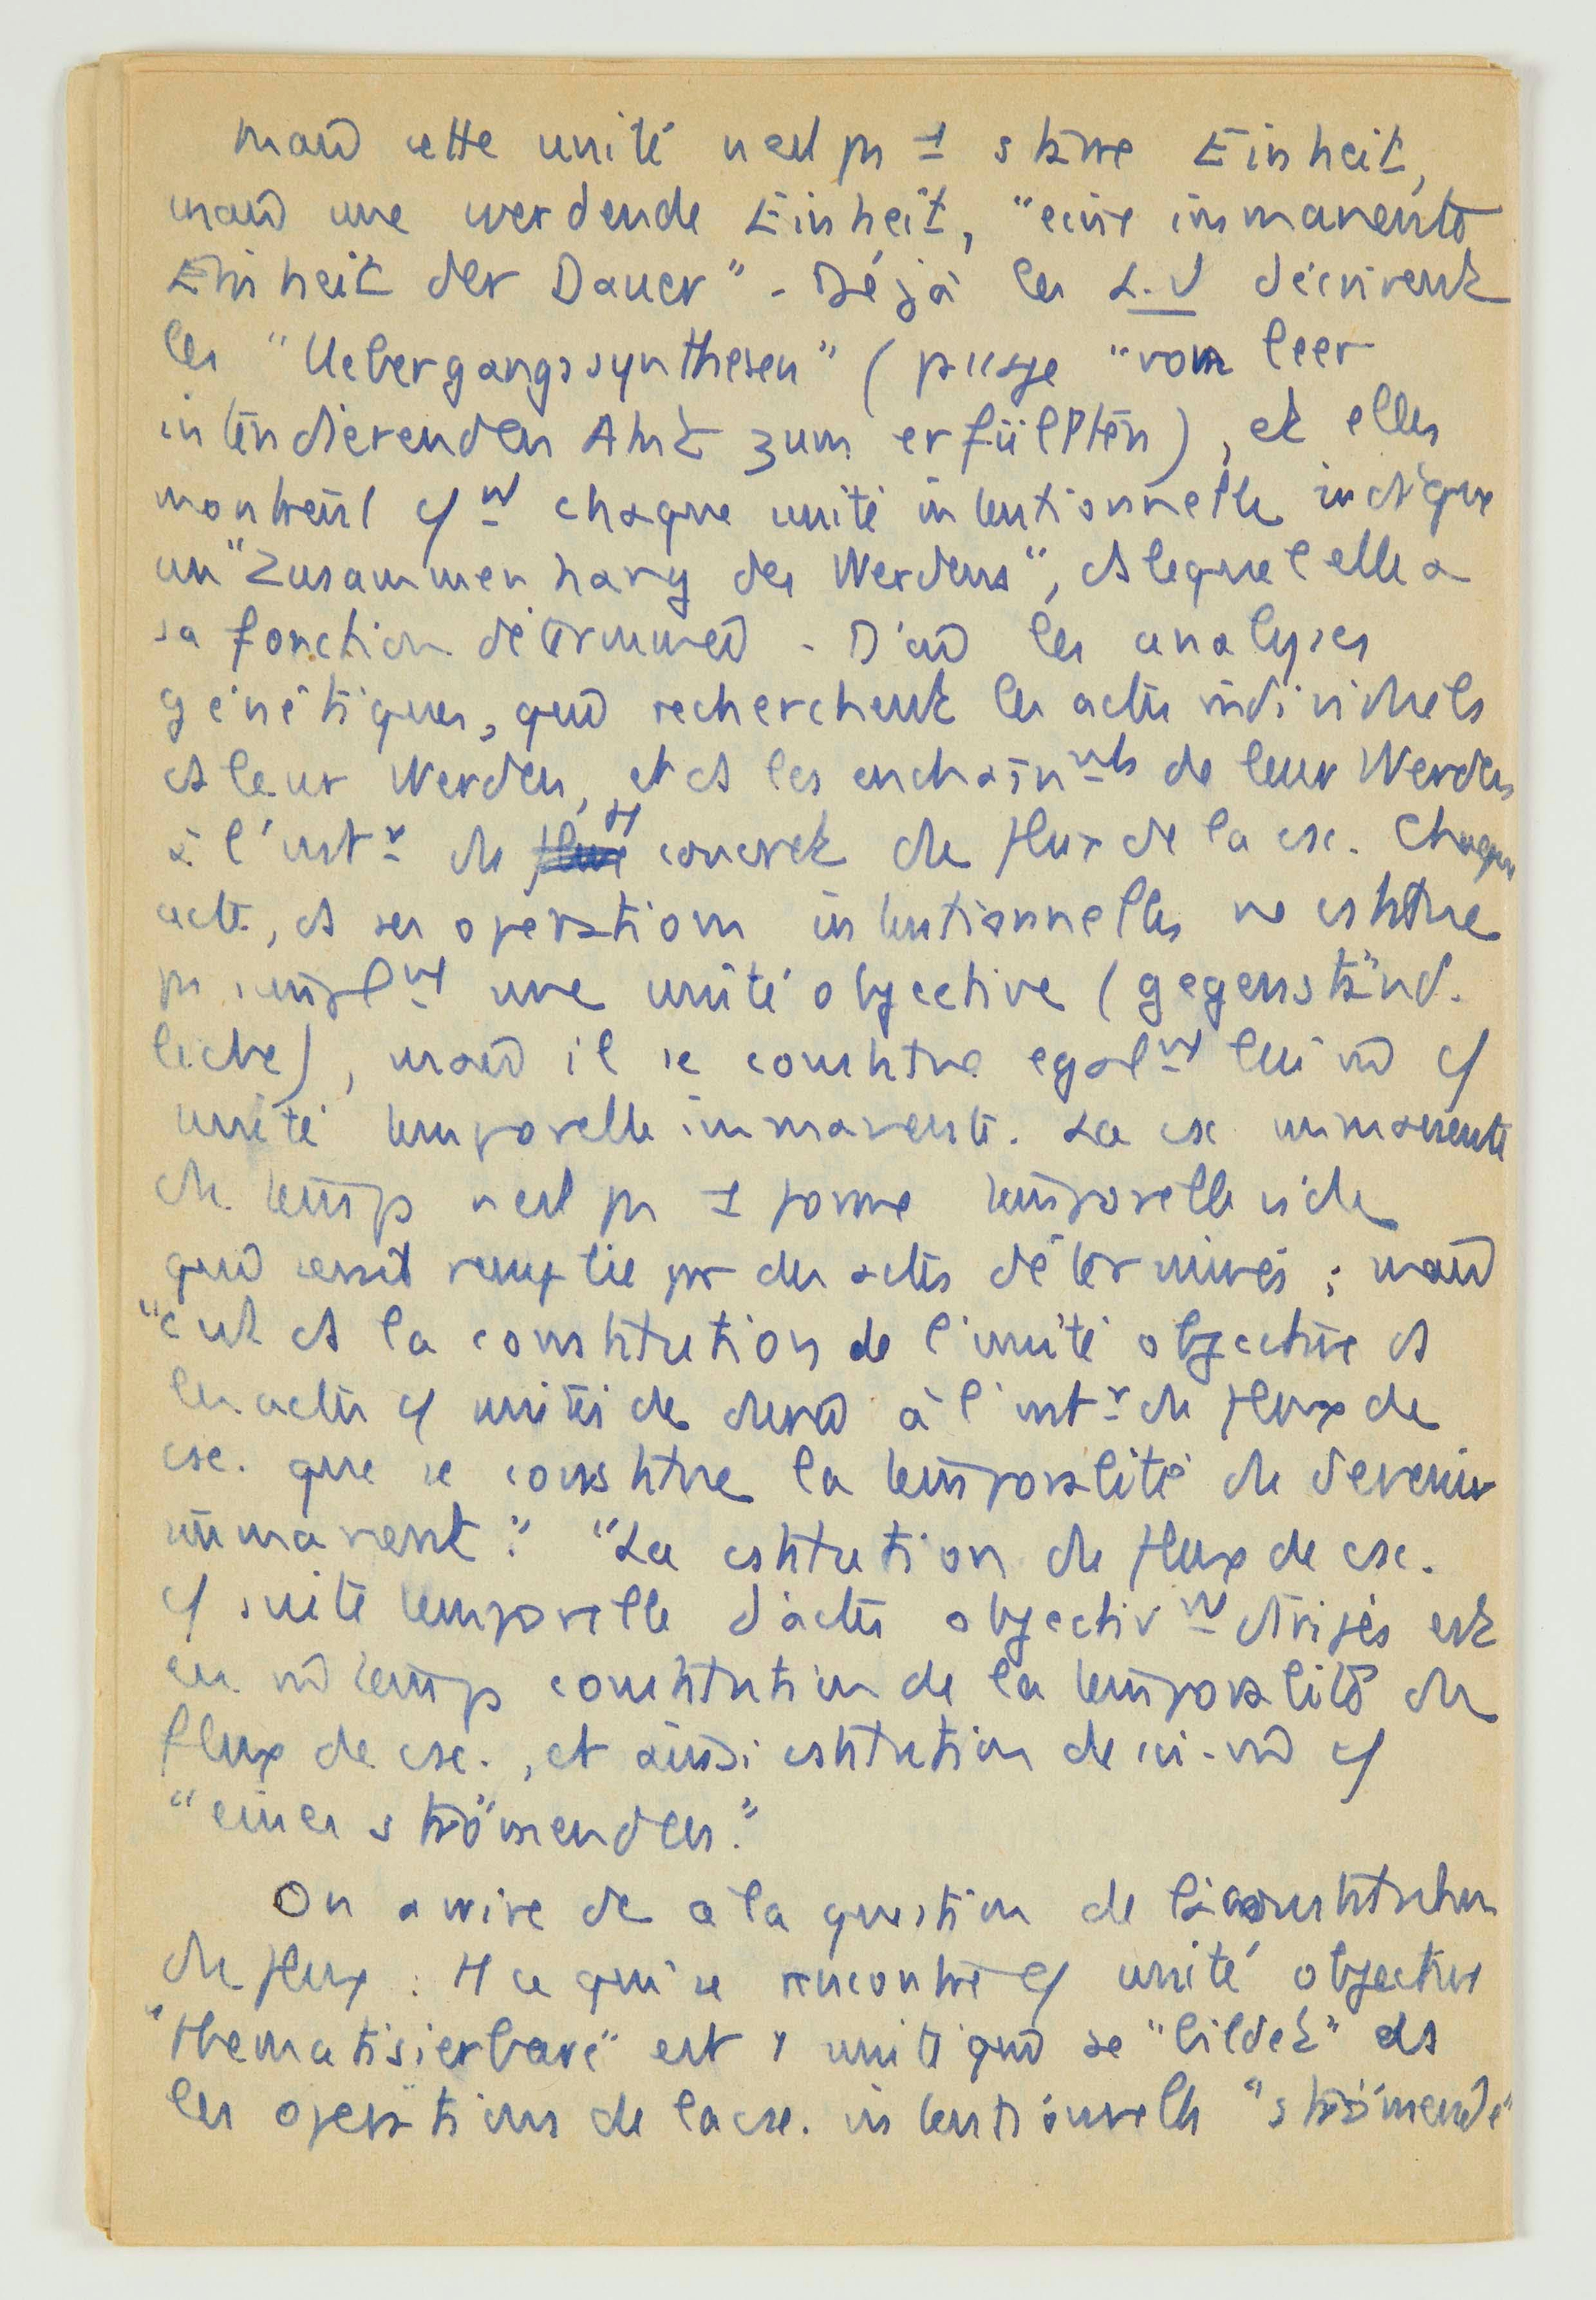 mais cette unité n'est pas 1 starre Einheit,
mais une werdende Einheit, "eine immanente
Einheit der Dauer" - Déjà les L.U décrivent
les "Uebergangssynthesen" (passage "vom leer
intendierenden Akt zum erfüllten), et elles
montrent cmt chaque unité intentionnelle indique
un "Zusammenhang des Werdens", ds lequel elle a
sa fonction déterminée - D'où les analyses
génétiques, qui recherchent les actes individuels
ds leur Werden, et ds les enchaînmts de leur Werdens
à l'intr du tt concret du flux de la csc. Chaque
acte, ds ses opérations intentionnelles ne cstitue
pas simplmt une unité objective (gegenständ-
liche), mais il se constitue égalmt lui-m̂ c/
unité temporelle immanente. La csc immanente
du temps n'est pas 1 forme temporelle vide
qui serait remplie par des actes déterminés ; mais
"c'est ds la constitution de l'unité objective ds
les actes c/ unités de durée à l'intr du flux de
csc. que se constitue la temporalité du devenir
immanent." "La cstitution du flux de csc.
c/ suite temporelle d'actes objectivmt dirigés est
en m̂ temps constitution de la temporalité du
flux de csc., et aussi cstitution de lui-m̂ c/
"eines strömenden."
On arrive dc à la question de l'autoconstitution
du flux : tt ce qui se rencontre c/ unité objective
"thematisierbare" est 1 unité qui se "bildet" ds
les opérations de la csc. intentionnelle "strömende"